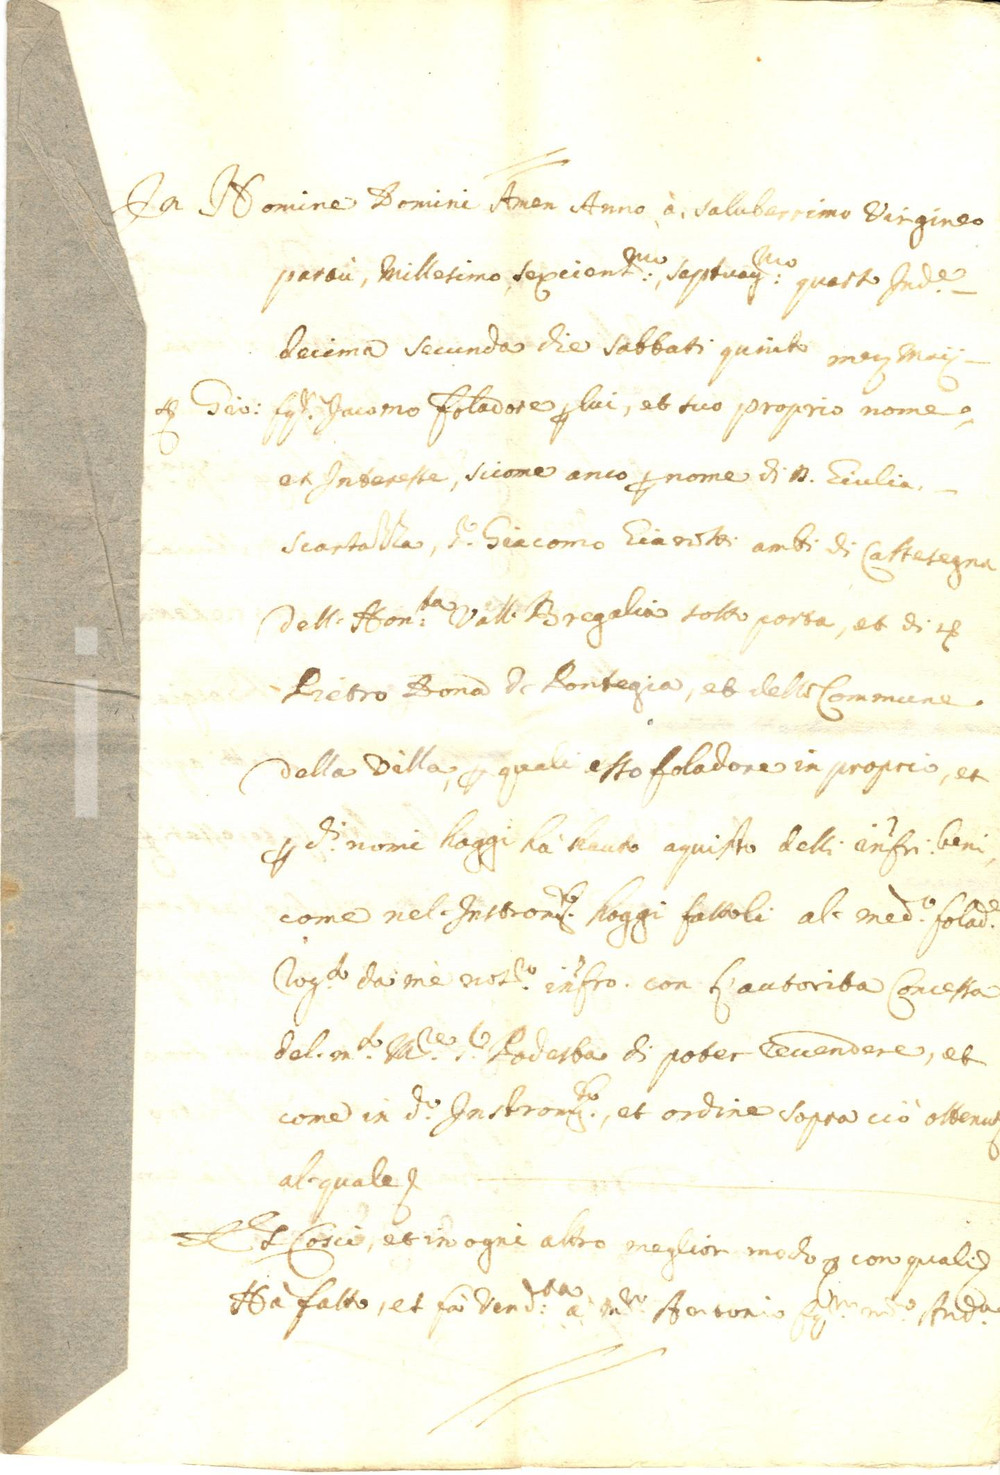 In Nomine Domini Amen Anno à saluberrimo Virgineo
partu, Millesimo, sexcient.mo, septuag.mo quarto Ind.e
decima secunda die sabbati quinto Maij
Gio: Jacomo foladore p lui, et suo proprio nome
et Interesse, sicome anco p nome di D. Giulia
Scartazza, Giacomo ambi di Castesegna
dell Hon.ta Vall Bregalia sotto porta, et di
Pietro Donà de Pontegia, et della Commune
della Villa, p quali esso foladore in proprio, et
p d.i nomi hoggi hà hauto aquisto delli infri. beni,
come nel Instrom.to hoggi fattoli al med.o folad.e
rog.to da me not.o infro. con l'autorita Concessa
del m.to Podesta di poter revendere, et
come in d.o Instrom.to, et ordine sopra ciò ottenut
al quale
Cosi, et in ogni altro meglior modo con quali
Hà fatto, et fà vend.ta à m.ro Antonio And.a